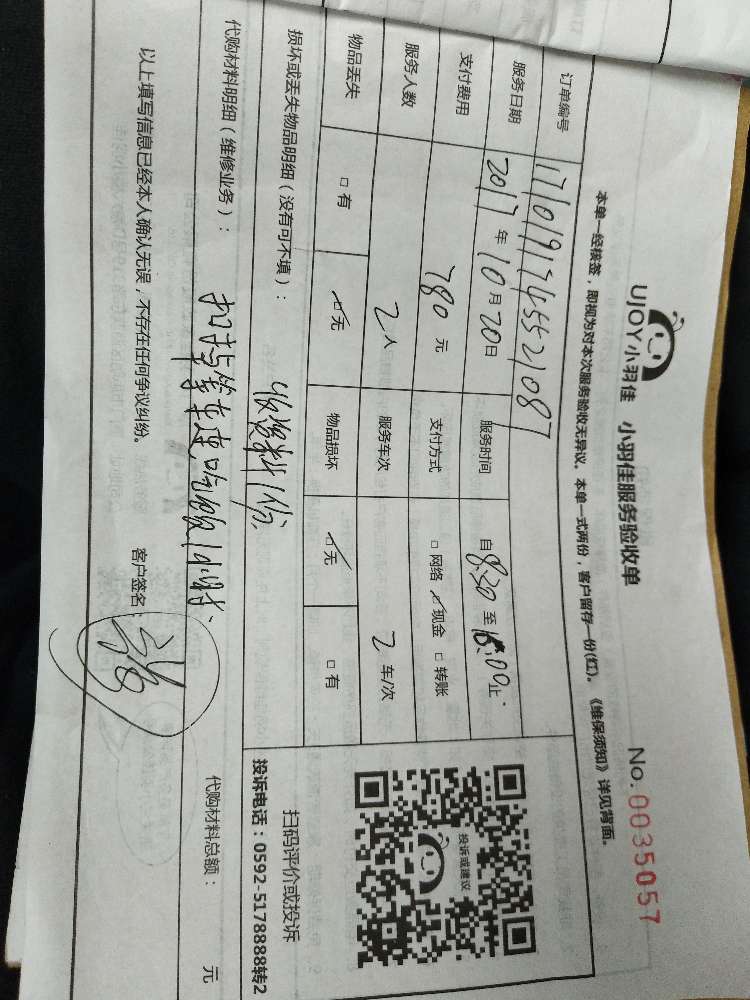 UJOY小羽佳 小羽佳服务验收单
No.0035057
本单一经核签，即视为对本次服务验收无异议。本单一式两份，客户留存一份(红)。《维保须知》详见背面。
订单编号 17101917455521087
服务日期 2017年10月20日 服务时间 自8:30至18:00止
支付费用 780元 支付方式 □网络 ☑现金 □转账
服务人数 2人 服务车次 2车/次
物品丢失 □有 ☑无 物品损坏 ☑无 □有
损坏或丢失物品明细（没有可不填）：
收资料1份
代购材料明细（维修业务）：
1小时
代购材料总额： 元
以上填写信息已经本人确认无误，不存在任何争议纠纷。
客户签名：
投诉或建议
扫码评价或投诉
投诉电话：0592-5178888转2